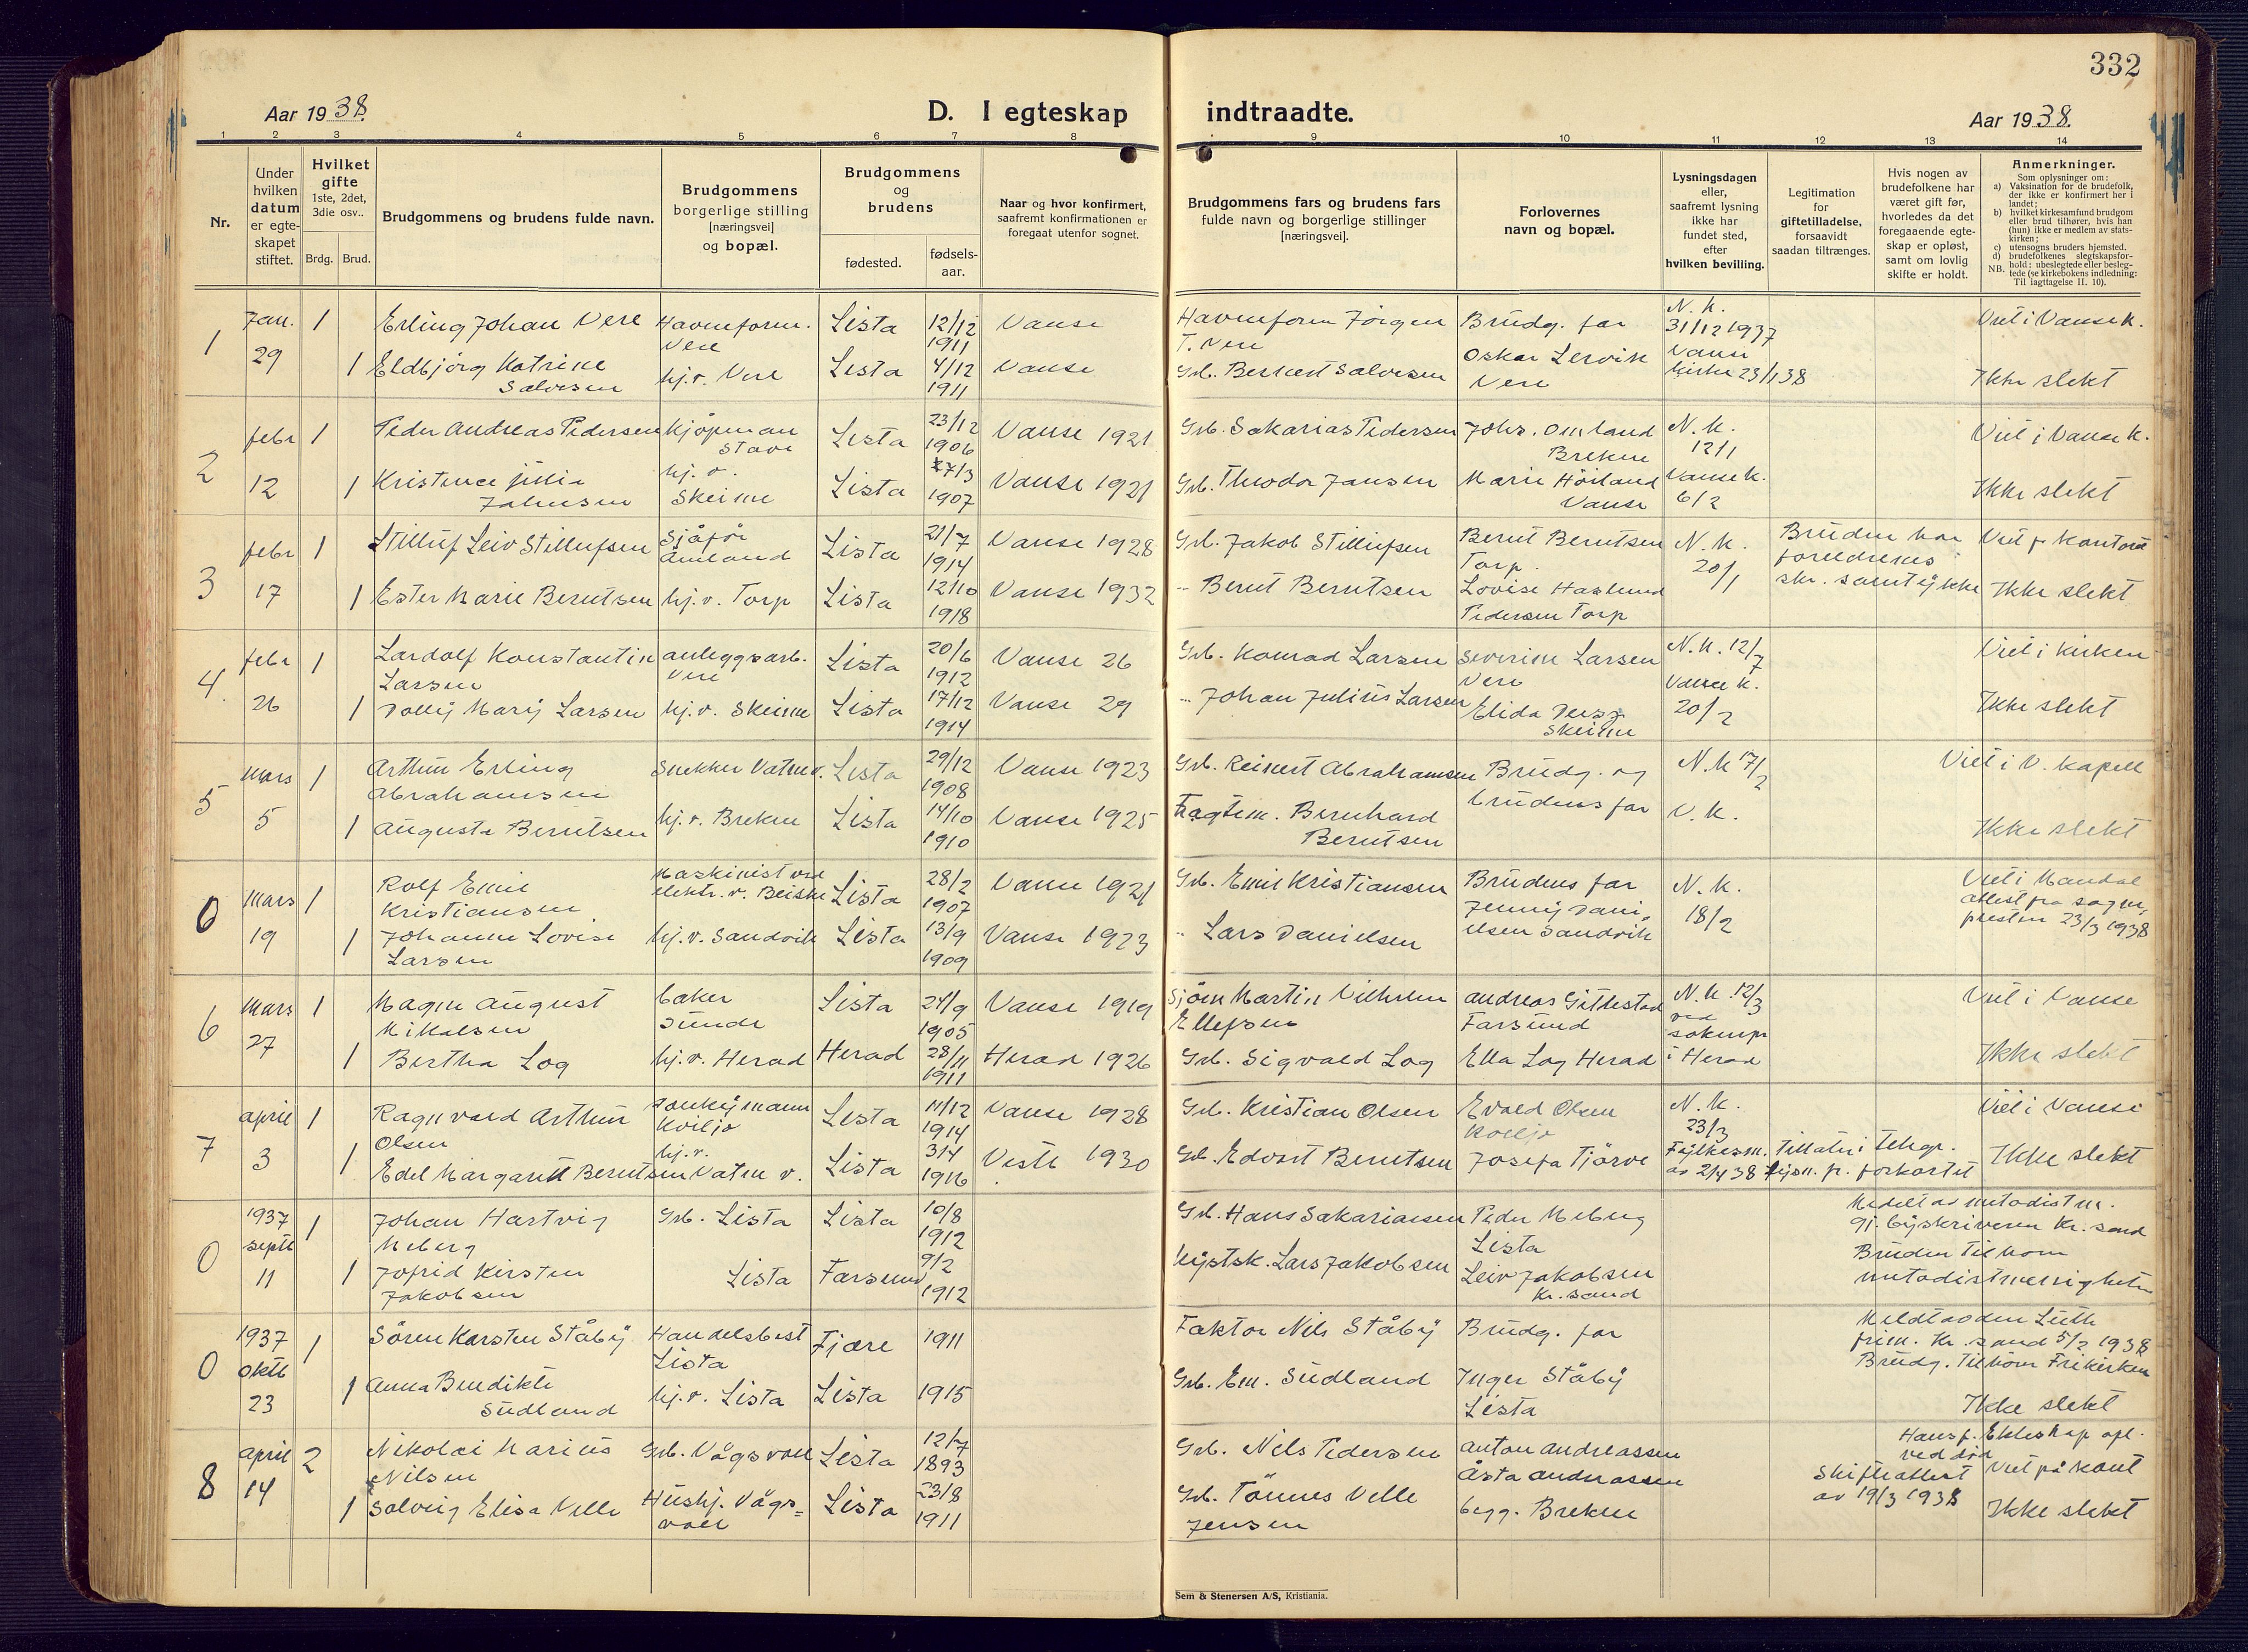 332
Aar 1938.
D. I egteskap
indtraadte.
Aar 1938.
1 2 3 4 5 6 7 8 9 10 11 12 13 14
Nr.
Under
hvilken
datum
er egte-
skapet
stiftet.
Hvilket
gifte
1ste, 2det,
3die osv..
Brdg. Brud.
Brudgommens og brudens fulde navn.
Brudgommens
borgerlige stilling
[næringsvei]
og bopæl.
Brudgommens
og
brudens
fødested.
fødsels-
aar.
Naar og hvor konfirmert,
saafremt konfirmationen er
foregaat utenfor sognet.
Brudgommens fars og brudens fars
fulde navn og borgerlige stillinger
[næringsvei].
Forlovernes
navn og bopæl.
Lysningsdagen
eller,
saafremt lysning
ikke har
fundet sted,
efter
hvilken bevilling.
Legitimation
for
giftetilladelse,
forsaavidt
saadan tiltrænges.
Hvis nogen av
brudefolkene har
været gift før,
hvorledes da det
foregaaende egte-
skap er opløst,
samt om lovlig
skifte er holdt.
Anmerkninger.
Som oplysninger om:
a) Vaksination for de brudefolk,
der ikke er konfirmert her i
landet;
b) hvilket kirkesamfund brudgom
eller brud tilhører, hvis han
(hun) ikke er medlem av stats-
kirken;
c) utensogns bruders hjemsted.
d) brudefolkenes slegtskapsfor-
hold: ubeslegtede eller besleg-
NB. tede (se kirkebokens indledning:
Til iagttagelse II. 10).
1 Jan. 29 1 Erling Johan Vere Havneform. Vere Lista 12/12 1911 Vanse Havneform Jørgen T. Vere Brudg. far N. K. 31/12 1937 Viet i Vanse k.
1 Eldbjørg Katrine Salvesen hj.v. Vere Lista 4/12 1911 Vanse Grb. Berkert Salvesen Oskar Lervik Vere Vanse kirke 23/1 38 Ikke slekt
2 febr 12 1 Peder Andreas Pedersen Kjøpman Stave Lista 23/12 1906 Vanse 1921 Grb. Sakarias Pedersen Johs. Omland Brekne N. K. 12/1 Viet i Vanse k.
1 Kristence Julie Johnsen hj. v. Skeime Lista 27/3 1907 Vanse 1921 Grb. Theodor Jansen Marie Høiland Vanse Vanse K. 6/2 Ikke slekt
3 febr 17 1 Stilluf Leiv Stillufsen Sjåfør Åmland Lista 21/7 1914 Vanse 1928 Grb. Jakob Stillufsen Berut Berntsen Torp. N. K. 20/1 Bruden har foreldrenes skr. samtykke Viet p kontoret
1 Ester Marie Berntsen hj. v. Torp Lista 12/10 1918 Vanse 1932 " Bernt Berntsen Lovise Haslund Pedersen Torp Ikke slekt
4. febr 26 1 Lardolf Konstantin Larsen anleggsarb. Vere Lista 20/6 1912 Vanse 26 Grb. Konrad Larsen Severine Larsen Vere N. K. 12/7 Viet i kirken
1 Dolly Mary Larsen hj. v. Skeime Lista 17/12 1914 Vanse 29 " Johan Julius Larsen Elida Skeime Vanse K. 20/2 Ikke slekt
5 mars 5 1 Arthur Erling Abrahamsen Snekker Vatne v. Lista 29/12 1908 Vanse 1923 Grb. Reinert Abrahamsen Brudg. og brudens far N. K 17/2 Viet i V. kapell
1 Augusta Berntsen hj. v. Brekne Lista 14/10 1910 Vanse 1925 Fragtem. Bernhard Berntsen V. K. Ikke slekt
0 mars 19 1 Rolf Emil Kristiansen Maskinist ved elektr. v. Beiske Lista 28/2 1907 Vanse 1921 Grb. Emil Kristiansen Brudens far N. K. 18/2 Viet i Mandal attest fra sogne, presten 23/3 1938
1 Johanne Lovise Larsen hj. v. Sandvik Lista 13/9 1909 Vanse 1923 " Lars Danielsen Jenny Dani, elsen Sandvik
6 mars 27 1 Magne August Mikalsen baker Sunde Lista 24/9 1905 Vanse 1919 Sjöm Martin Vilhelm Ellefsen Andreas Gittlestad Farsund N. K. 12/3 ved sokenpr i Herad Viet i Vanse
1 Bertha Log hj. v. Herad Herad 28/11 1911 Herad 1926 Grb. Sigvald Log Ella Log Herad Ikke slekt
7 april 3 1 Ragnvald Arthur Olsen Donkeymann Kviljo Lista 11/12 1914 Vanse 1928 Grb. Kristian Olsen Evald Olsen Kviljo N. K. 23/3 Viet i Vanse
1 Edel Margarett Berntsen hj. v. Vatne v. Lista 3/4 1916 Veste 1930 Grb. Edvart Berntsen Josefa Tjørve Fylkesm. tillater i telegr. av 2/4 38 lysn. fr. forkortet Ikke slekt
0 1937 septb 11 1 Johan Hartvig Meberg Grb. Lista Lista 10/8 1912 Grb. Hans Sakariassen Peder Meberg Lista Meddelt av metodistm. gj. byskriveren Kr. sand
1 Jofrid Kirsten Jakobsen Lista Farsund 9/2 1912 Lystsk. Lars Jakobsen Leiv Jakobsen Kr. sand Bruden tilhører metodistmenigheten
0 1937 oktb 23 1 Søren Karsten Ståby Handelsbest Lista Fjære 1911 Faktor Nils Ståby Brudg. far Meldt av den Luth frim. Kr. sand 5/2 1938 Brudg. tilhører Frikirken
1 Anna Bendikte Sudland hj. v. Lista Lista 1915 Grb. Em. Sudland Inger Ståby Lista Ikke slekt
8 april 14 2 Nikolai Marius Nilsen Grb. Vågsvoll Lista 12/7 1893 Grb. Nils Pedersen Anton Andreassen Hans f. Ekteskap opl. ved død Skifteattest av 19/3 1938 Viet på kont
1 Solveig Elisa Velle Hushj. Vågs= voll Lista 23/8 1911 Grb. Tønnes Velle Jensen Åsta Andreassen begg. Brekne Ikke slekt
Sem & Stenersen A/S, Kristiania.